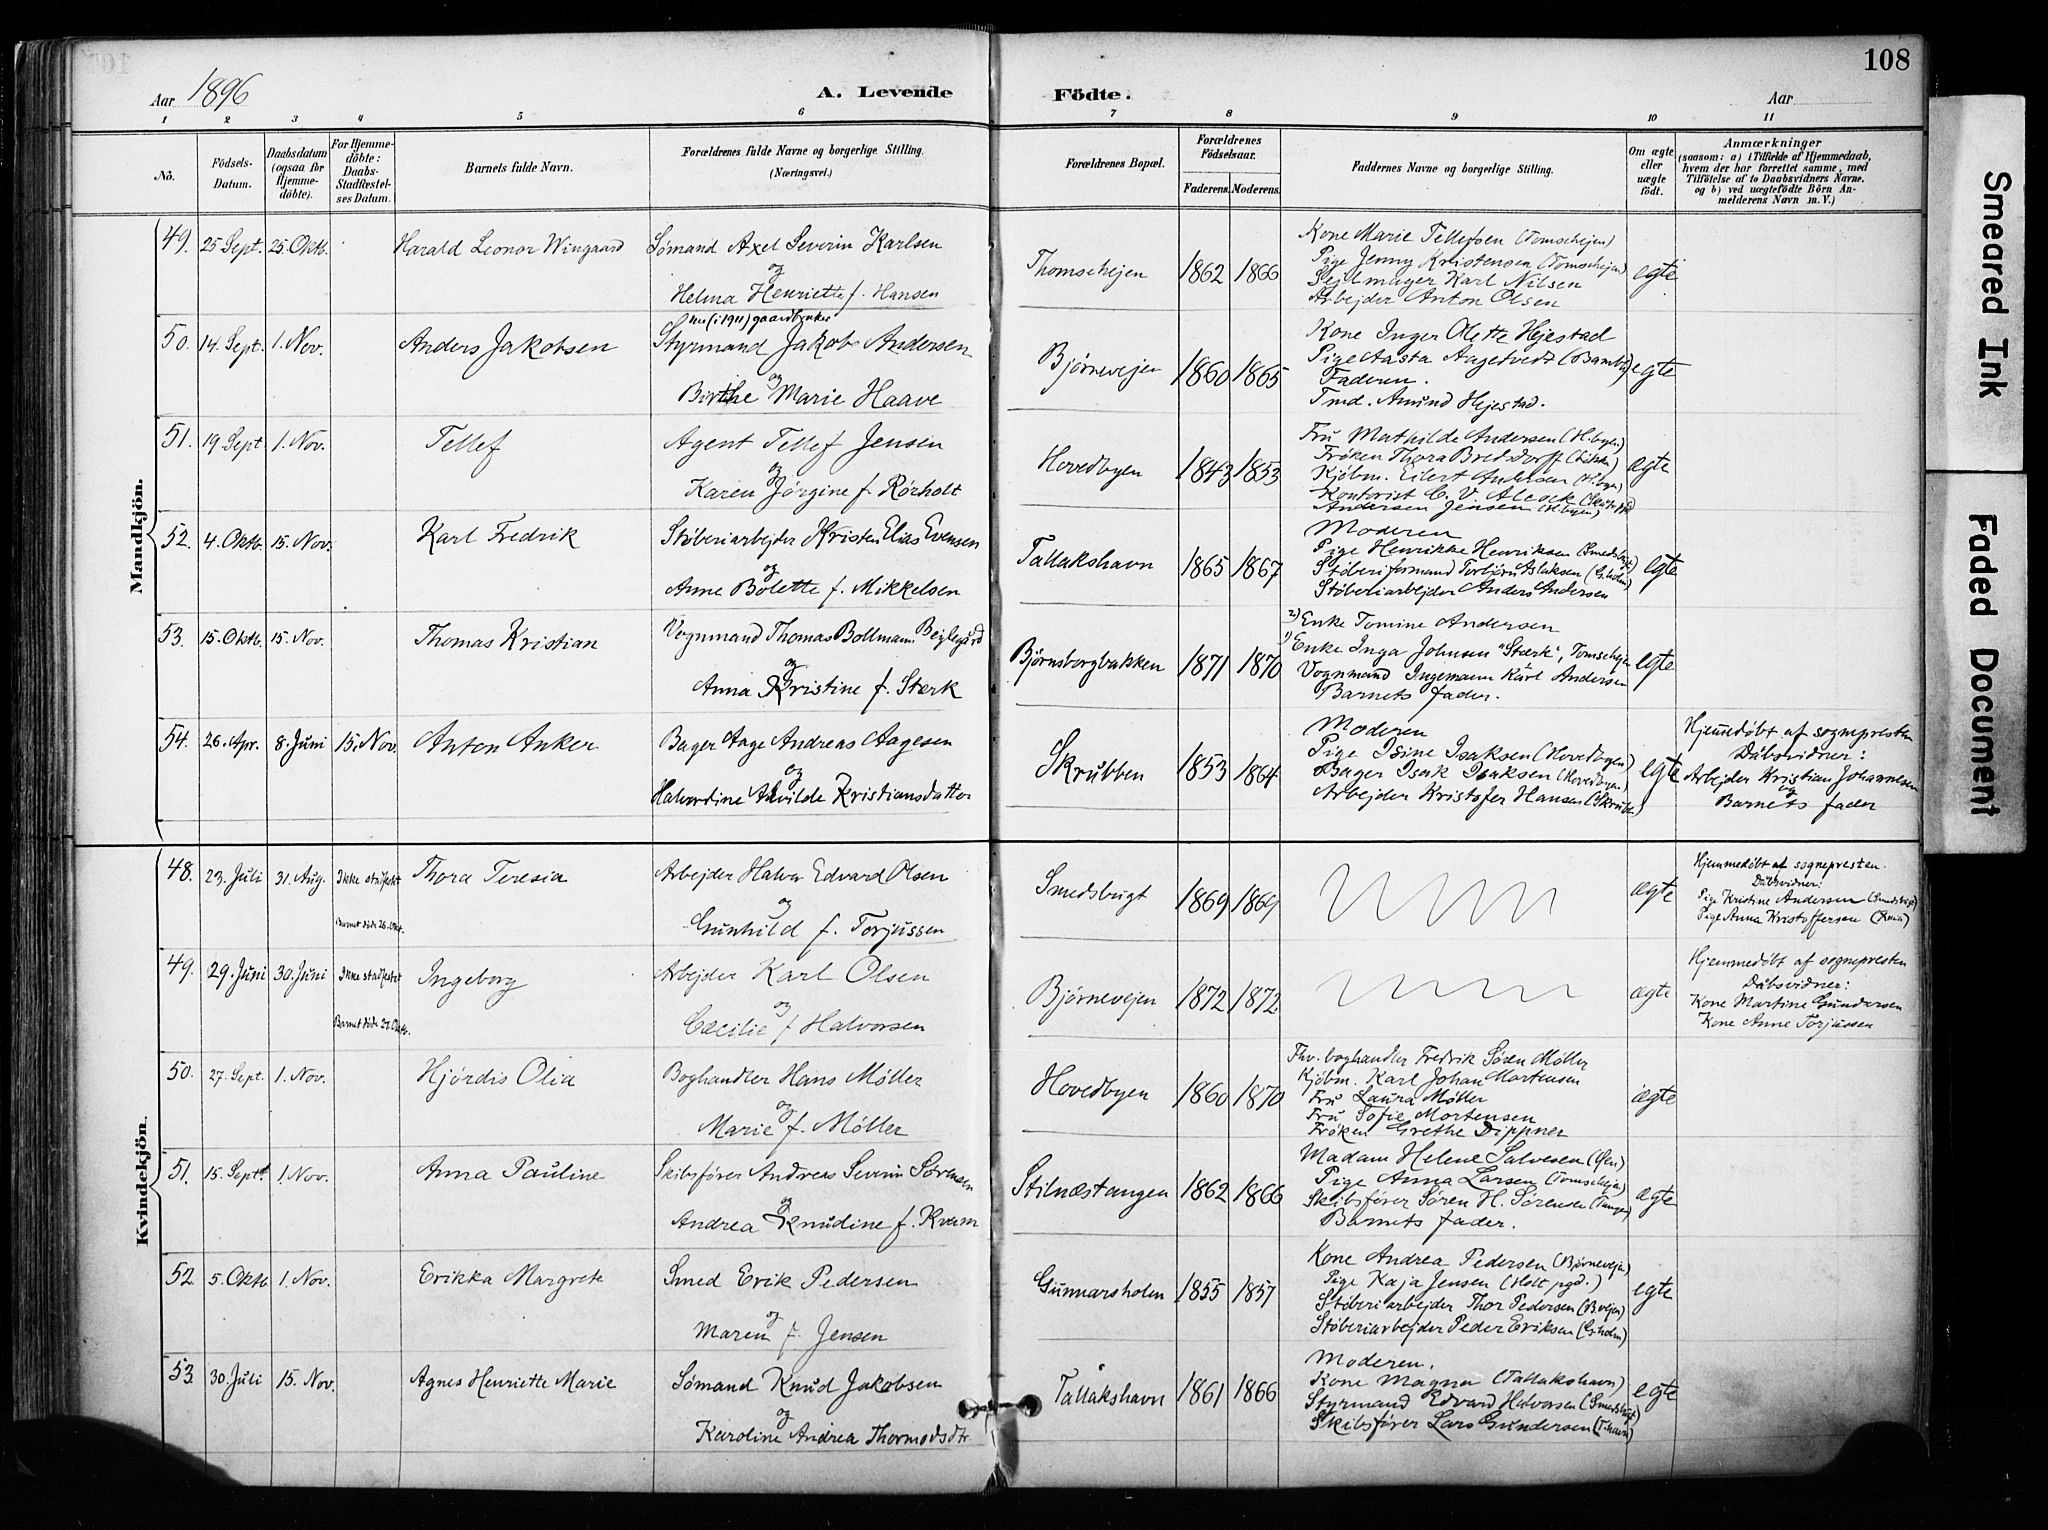 108
Aar 1896
A. Levende Födte.
Aar
1 2 3 4 5 6 7 8 9 10 11
No.
Födsels-Datum.
Daabsdatum (ogsaa for Hjemmedöbte).
For Hjemmedöbte: Daabs-Stadfæstelses Datum.
Barnets fulde Navn.
Forældrenes fulde Navne og borgerlige Stilling.
(Næringsvei.)
Forældrenes Bopæl.
Forældrenes Födselsaar.
Faderens. Moderens.
Faddernes Navne og borgerlige Stilling.
Om ægte eller uægte födt.
Anmærkninger
(saasom: a) i Tilfælde af Hjemmedaab,
hvem der har forrettet samme, med
Tilföielse af to Daabsvidners Navne.
og b) ved uægtefödte Börn Anmelderens
Navn m. V.)
Mandkjön.
49. 25 Sept. 25. Oktb. Harald Leonor Wingaard
Sømand Axel Severin Karlsen
og
Helma Henriette f. Hansen
Thomschejen 1862 1866
Kone Marie Tellefsen (Tomschejen)
Pige Jenny Kristensen (Tomschejen)
Sejlmager Karl Nilsen
Arbejder Anton Olsen
egte
50. 14. Sept. 1. Nov. Anders Jakobsen
nu (i 1911) gaardbruker
Styrmand Jakob Andersen
og
Birthe Marie Haave
Bjørnevejen 1860 1865
Kone Inger Olette Hejestad
Pige Aasta Aagetvedt (Bamble)
Faderen.
Tmd. Amund Hejestad.
egte
51. 19 Sept 1. Nov. Tellef
Agent Tellef Jensen
og
Karen Jørgine f. Rørholt
Hovedbyen 1843 1853
Fru Mathilde Andersen (H.byen)
Frøken Thora Bredsdorff
Kjøbm. Eilert Andersen (H.byen)
Kontorist C. V. Alcock
Andersen Jensen (H.byen)
ægte
52. 4. Oktb. 15. Nov. Karl Fredrik
Støberiarbejder Kristen Elias Evensen
og
Anne Bolette f. Mikkelsen
Tallakshavn 1865 1867
Moderen
Pige Henrikke Henriksen (Smedsbugt)
Støberiformand Torbjørn Aslaksen (G.holm)
Støberiarbejder Anders Andersen
egte
53. 15. Oktb. 15. Nov. Thomas Kristian
Vognmand Thomas Bollmann Bejlegård
og
Anna Kristine f. Stærk
Bjørnsborgbakken 1871 1870
2) Enke Tomine Andersen
1) Enke Inga Johnsen "Stærk", Tomschejen
Vognmand Ingemann Karl Andersen
Barnets fader.
egte
54. 26. Apr. 8. Juni 15. Nov. Anton Anker
Bager Aage Andreas Aagesen
og
Halvordine Alvilde Kristiansdatter
Skrubben 1853 1864
Moderen
Pige Isine Isaksen (Hovedbyen)
Bager Isak Isaksen (Hovedbyen)
Arbejder Kristofer Hansen (Skrubben)
egte
Hjemmedøbt af sognepresten
Dåbsvidner:
Arbejder Kristian Johannesen
og
Barnets fader
Kvindekjön.
48. 23. Juli 31. Aug. Ikke stadfæstet
Barnet døde 26. Okt.
Thora Teresia
Arbejder Halvor Edvard Olsen
og
Gunhild f. Torjussen
Smedsbugt 1869 1869
ægte
Hjemmedøbt af sognepresten.
Dåbsvidner:
Pige Kristine Andersen (Smedsbugt)
Pige Anna Kristoffersen
49. 29. Juni 30. Juni Ikke stadfæstet
Barnet døde 27. Oktb.
Ingeborg
Arbejder Karl Olsen
og
Cæcilie f Halvorsen
Bjørnevejen 1872 1872
ægte
Hjemmedøbt af sognepresten
Dåbsvidner:
Kone Martine Gundersen
Kone Anne Torjussen
50. 27. Sept. 1. Nov. Hjørdis Olia
Boghandler Hans Møller
og
Marie f. Møller
Hovedbyen 1860 1870
Fhv. boghandler Fredrik Søren Møller
Kjøbm. Karl Johan Mortensen
Fru Laura Møller
Fru Sofie Mortensen
Frøken Grethe Dippner
ægte
51. 15. Sept. 1. Nov. Anna Pauline
Skibsfører Andreas Severin Sørensen
og
Andrea Knudine f. Kvam
Stilnæstangen 1862 1866
Madam Helene Salvesen
Pige Anna Larsen (Tomschejen)
Skibsfører Søren H. Sørensen (Tangen)
Barnets fader.
ægte
52 5. Oktb 1. Nov. Erikka Margrete
Smed Erik Pedersen
og
Maren f. Jensen
Gunnarsholm 1855 1857
Kone Andrea Pedersen (Bjørnevejen)
Pige Kaja Jensen (Holt pgd.)
Støberiarbejder Thor Pedersen (B.vejen)
Støberiarbejder Peder Eriksen (G.holm)
egte
53. 30. Juli 15. Nov. Agnes Henriette Marie
Sømand Knud Jakobsen
og
Karoline Andrea Thormodsdtr
Tallakshavn 1861 1866
Moderen.
Kone Magna (Tallakshavn)
Styrmand Edvard Halvorsen (Smedsbugt)
Skibsfører Lars Gundersen (T.havn)
egte
Smeared Ink
Faded Document